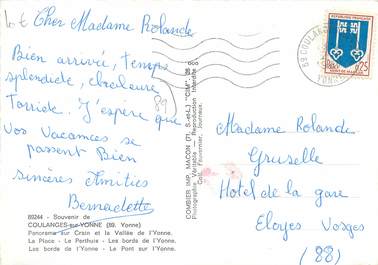 Cher Madame Rolande
Bien arrivée, temps
splendide, chaleur
Torride. J'espère que
Vos Vacances se
passent Bien
sincères Amitiés
Bernadette
89
89244 - Souvenir de
COULANGES-sur-YONNE (89. Yonne)
Panorama sur Crain et la Vallée de l'Yonne.
La Place - Le Perthuis - Les bords de l'Yonne.
Les bords de l'Yonne - Le Pont sur l'Yonne.
COMBIER IMP. MACON (71. S.-et-L.) "CIM"
Photographie Véritable - Reproduction Interdite
Café Fournier, Journaux.
89 COULANGES
YONNE
REPUBLIQUE FRANÇAISE
0,25
MONT-DE-MARSAN
Madame Rolande
Gruselle
Hotel de la gare
Eloyes Vosges
(88)